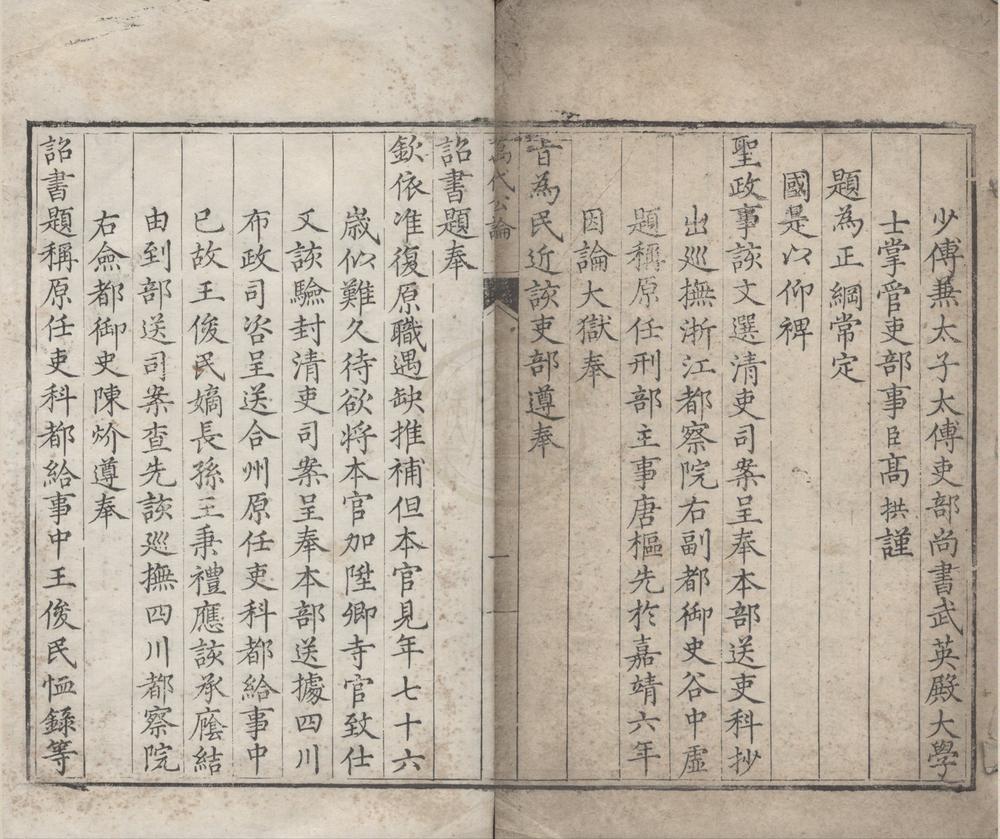 少傅兼太子太傅吏部尚書武英殿大學
士掌管吏部事臣高拱謹
題為正綱常定
國是以仰裨
聖政事該文選清吏司案呈奉本部送吏科抄
出巡撫浙江都察院右副都御史谷中虛
題稱原任刑部主事唐樞先於嘉靖六年
因論大獄奉
旨為民近該吏部遵奉
萬代公論 一
詔書題奉
欽依准復原職遇缺推補但本官見年七十六
歲似難久待欲將本官加陞卿寺官致仕
又該驗封清吏司案呈奉本部送據四川
布政司咨呈送合州原任吏科都給事中
已故王俊民嫡長孫王秉禮應該承廕結
由到部送司案查先該巡撫四川都察院
右僉都御史陳炌遵奉
詔書題稱原任吏科都給事中王俊民恤錄等